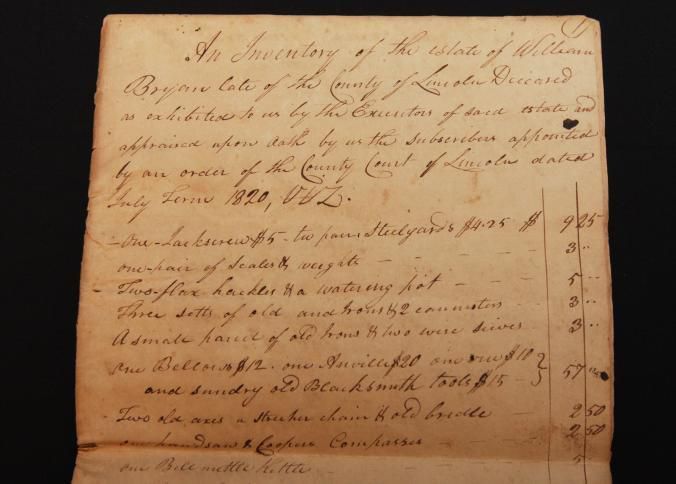 1
An Inventory of the estate of William
Bryan late of the County of Lincoln Deceased
as exhibited to us by the Executors of said estate and
appraised upon oath by us the subscribers appointed
by an order of the County Court of Lincoln dated
July Term 1820, VIZ.
One Jackscrew $5 - two pair Steelyards $4.25 $ 9 25
one pair of Scales & weights - - - 3 ..
Two flax hackles & a watering pot - - - 5 ..
Three setts of old and Irons & 2 - - 3 ..
A small parcel of old Irons & two wire sieves - 3 ..
one Bellows $12. one Anvill $20 one vice $10
and sundry old Blacksmith tools $15 - } 57 ..
Two old axes a chain & old bridle - 2 50
one handsaw & Coopers Compasses - 2 50
one Bell mettle Kettle - - 5